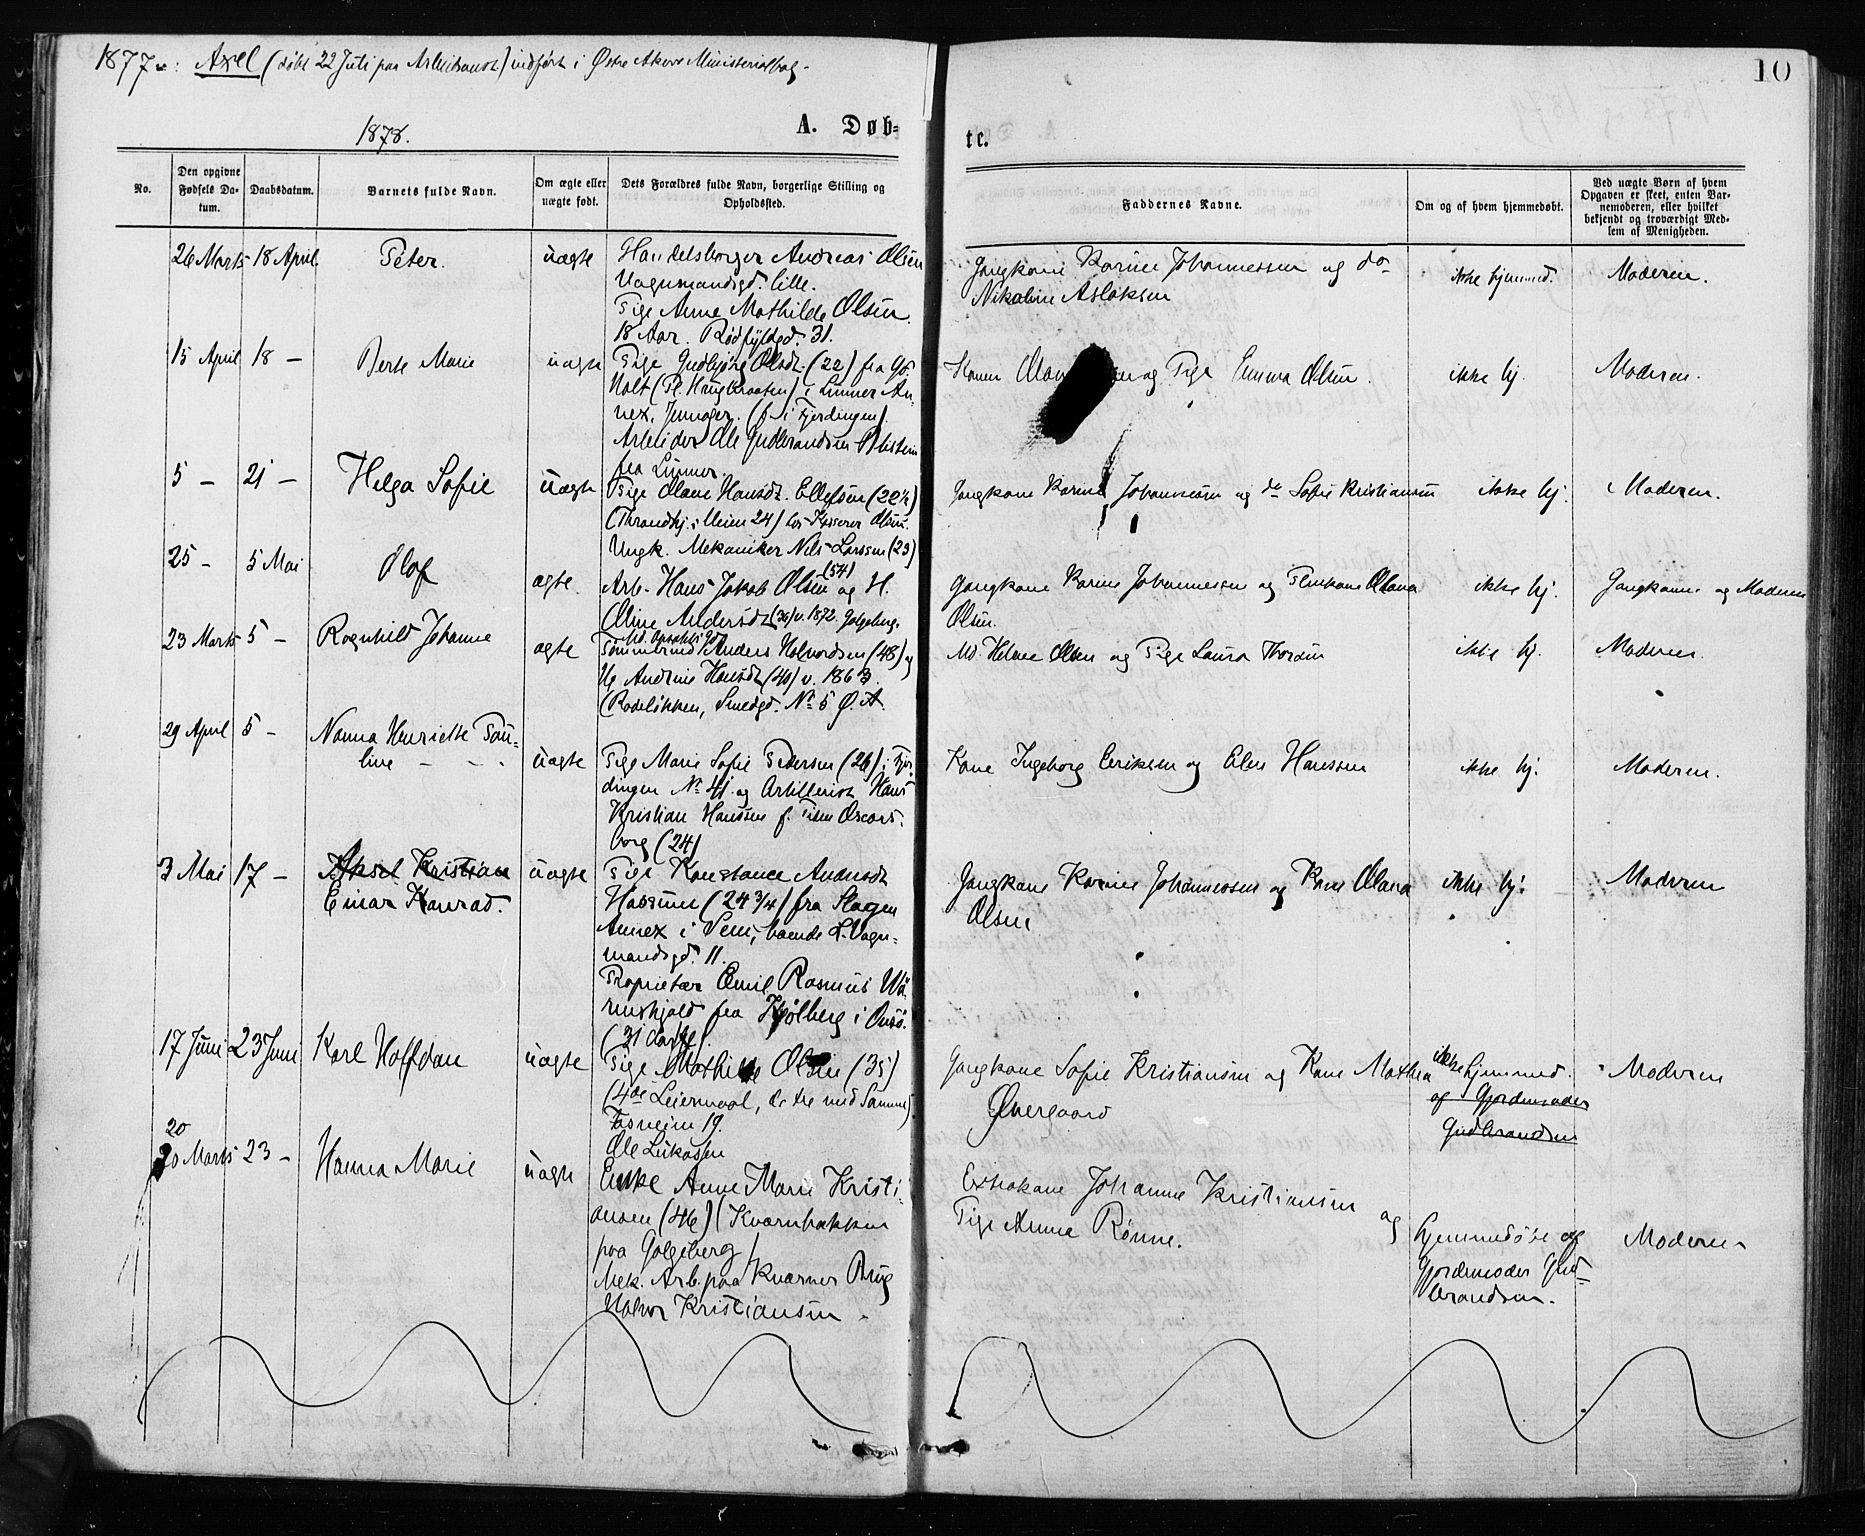 1877. Axel (døbt 22 Juli paa Arbeidsanst.) indført i Østre Akers Ministerialbog.
10
1878.
A. Døb-
te.
No.
Den opgivne Fødsels Datum.
Daabsdatum.
Barnets fulde Navn.
Om ægte eller uægte født.
Dets Forældres fulde Navn, borgerlige Stilling og Opholdssted.
Faddernes Navne.
Om og af hvem hjemmedøbt.
Ved uægte Børn af hvem Opgaven er skeet, enten Barnemoderen, eller hvilket bekjendt og troværdigt Medlem af Menigheden.
26 Marts 18 April. Peter. uægte Handelsborger Andreas Olsen
Vognmandsgd. lille.
Pige Anne Mathilde Olsen.
18 Aar. Rødfyldgd. 31.
Gangkone Karine Johannessen og do
Nikoline Aslaksen
ikke hjemmed. Moderen.
15 April 18 - Berte Marie uægte Pige Gudbjörg Olsdt. (22) fra
i Lunner An-
nex, Jevnager. (f. i Fjerdingen)
Arbeider Ole Gudbrandsen
fra Lunner.
og Pige Emma Olsen. ikke hj. Moderen.
5 - 21 - Helga Sofie uægte Pige Olave Hansdt. Ellefsen (22½)
(Throndhj. Veien 24) hos Kasserer Olsen.
Ungk. Mekaniker Nils Larssen (23)
Gangkone Karine Johannessen og do Sofie Kristiansen ikke hj. Moderen.
25 - 5 Mai Olaf ægte. Arb. Hans Jakob Olsen (54) og H.
Oline Andersdt (36) v. 1872. Galgeberg.
Gangkone Karine Johannessen og Pleiekone Olava
Olsen.
ikke hj. Gangkonen og Moderen
23 Marts 5 - Ragnhild Johanne ægte Tømmermd Anders Halvordsen (48) og
H. Andrine Hansdt (40) v. 1863.
(Rodeløkken, Smedgd. No 5 Ø. A.
Md. Helene Olsen og Pige Laura Thorsen ikke hj. Moderen.
29 April 5 - Nanna Henriette Pau-
line - - - uægte Pige Marie Sofie Pedersen (26) i Fjer-
dingen No 41. og Artillerist Hans
Kristian Hanssen f. Tiden Oscars-
borg (24)
Kone Ingeborg Eriksen og Elen Hanssen ikke hj. Moderen.
3 Mai 17 - Aksel Kristian
Einar Konrad. uægte Pige Konstance Andersdt
Hanssen (24 3/4) fra Slagen
Annex i Sem, boende L. Vogn-
mandsgd. 11.
Proprietær Emil Rasmus Wä-
renskjold fra Kjølberg i Onsö.
(31 Aar)
Gangkone Karine Johannessen og Kone Olava
Olsen
ikke hj. Moderen
17 Juni 23 Juni Karl Halfdan uægte Pige Mathilde Olsen (35)
(4de Leiermaal, de tre med Samme)
19.
Ole Lukassen
Gangkone Sofie Kristiansen og Kone Mathea
Overgaard
ikke hjemmed.
af Gjordemoder
Gudbrandsen
Moderen
20
20 Marts 23 - Hanna Marie uægte Enke Anne Marie Kristi-
ansen (46) (Kværnbakken
paa Galgeberg)
Mek. Arb. paa Kværner Brug
Halvor Kristiansen.
Extrakone Johanne Kristiansen og
Pige Anna Rönne.
hjemmedøbt af
Gjordemoder Gud-
brandsen.
Moderen